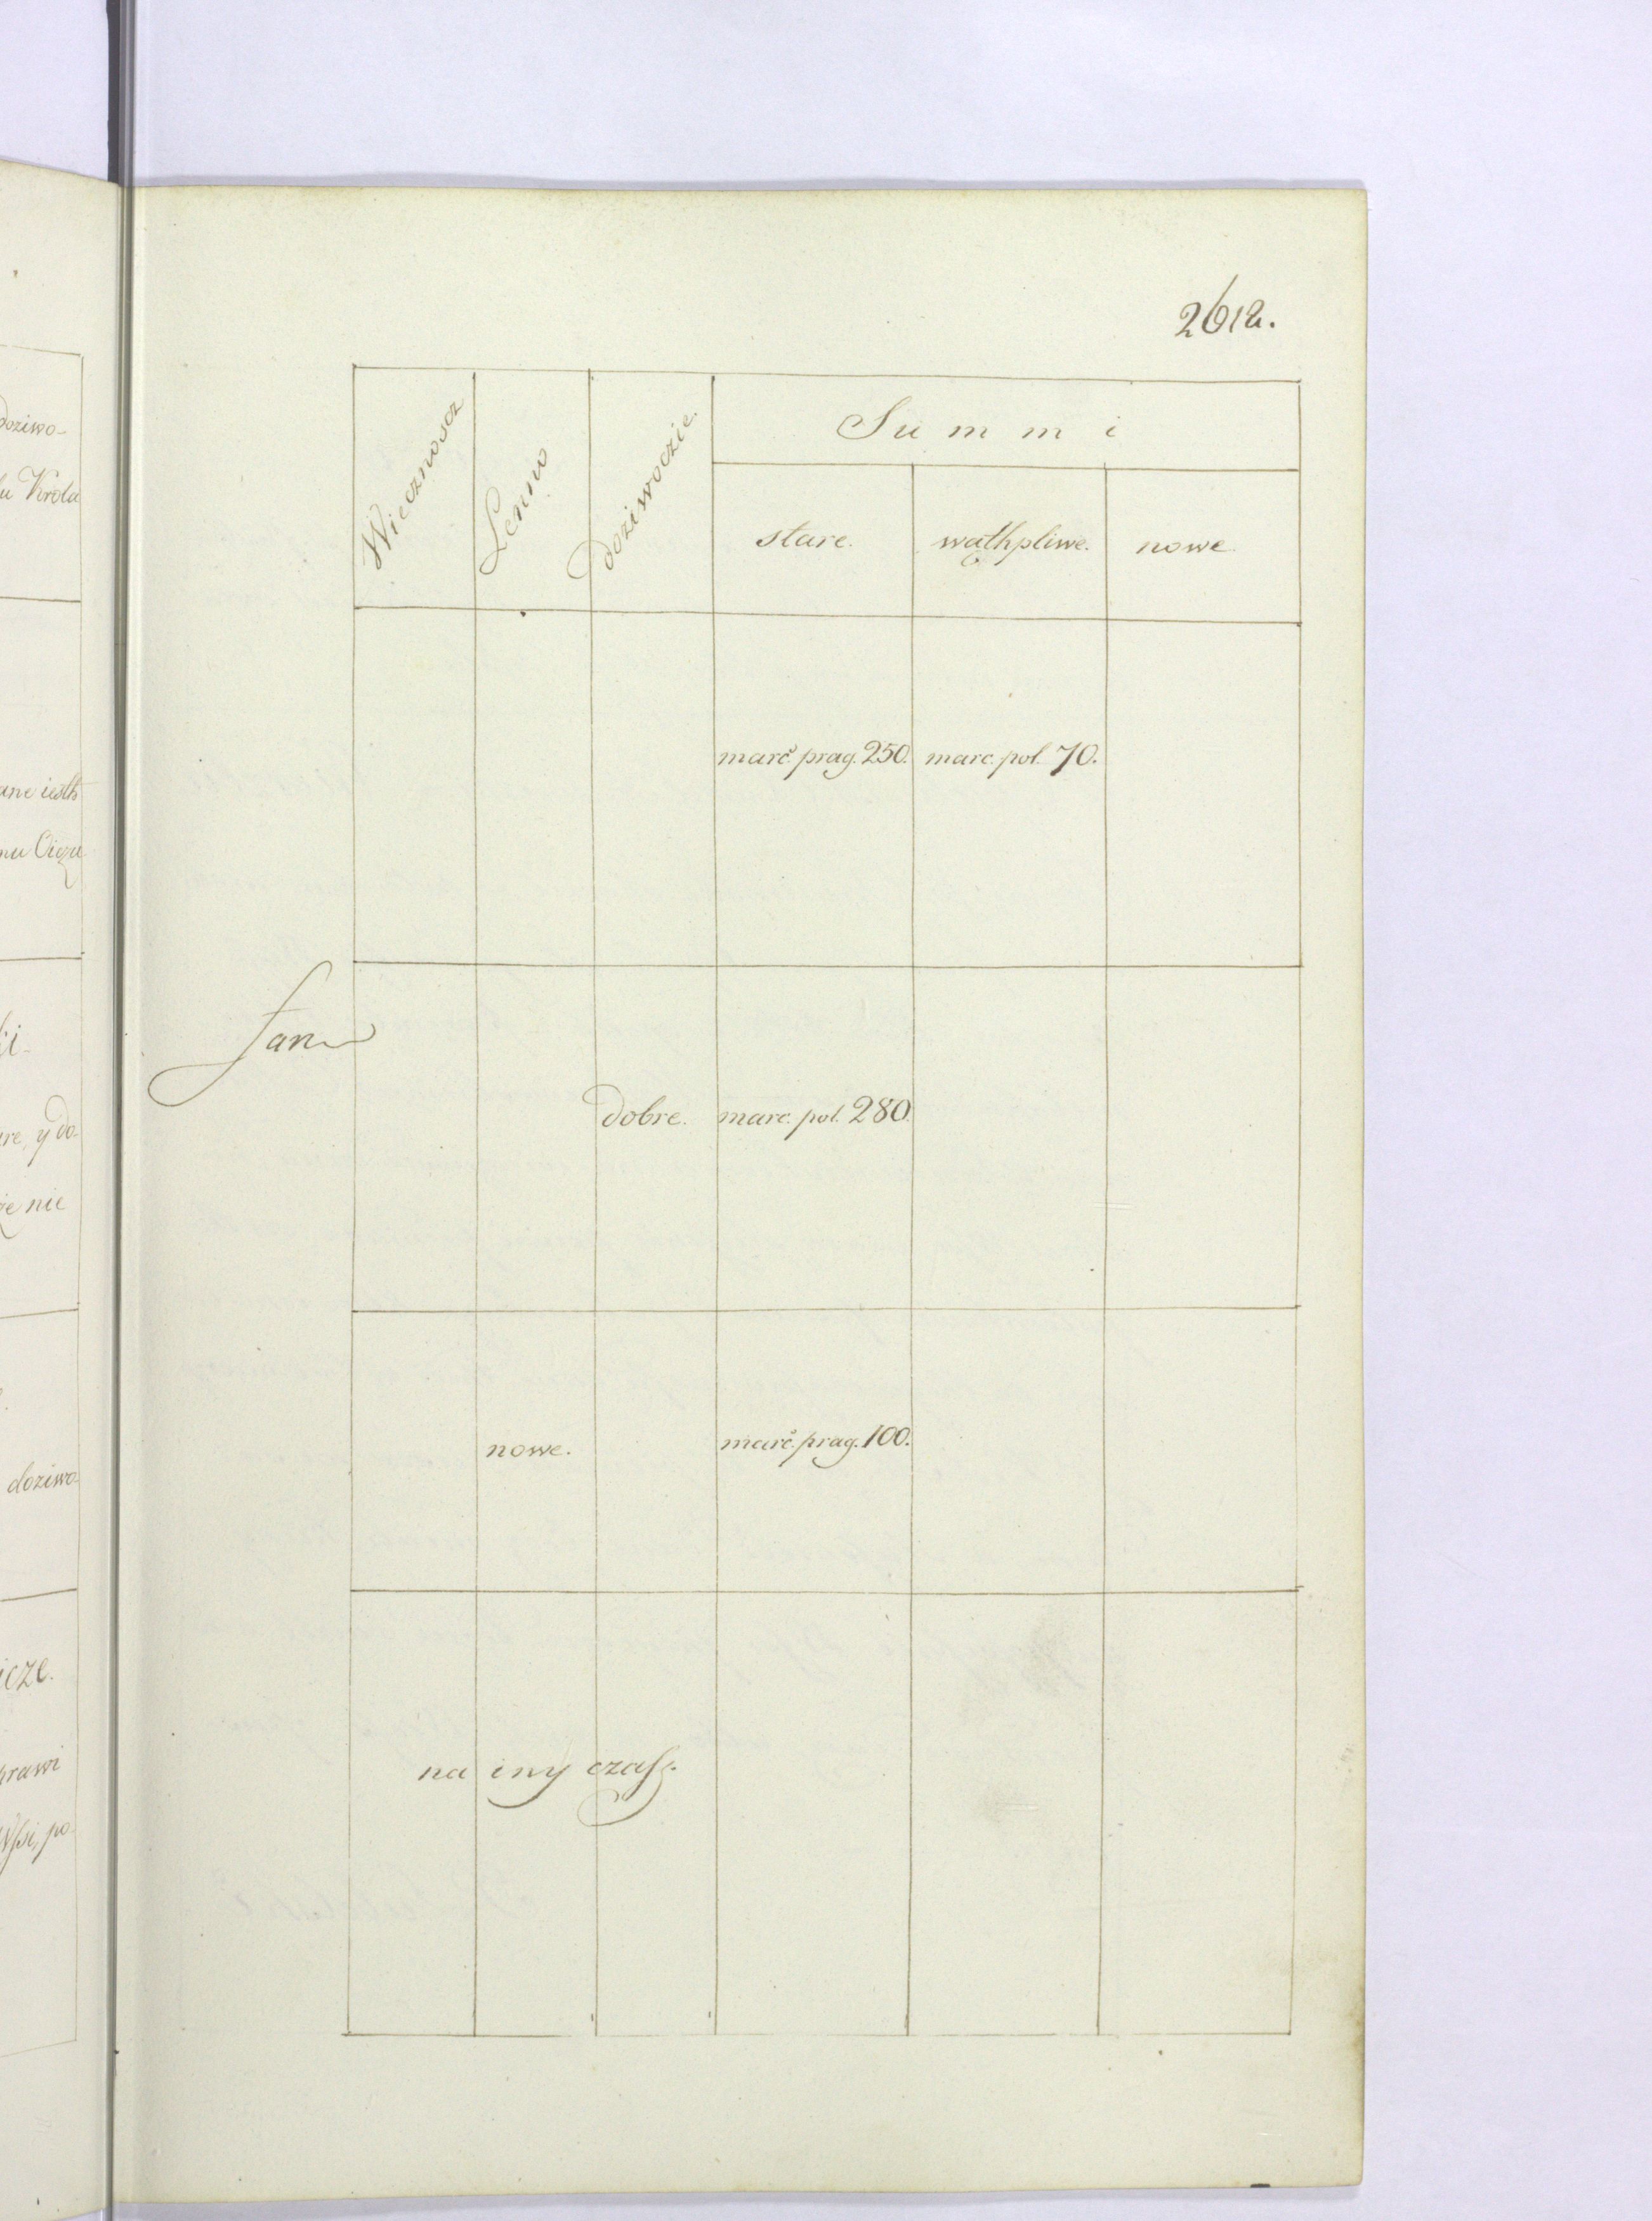 doziwo-
lu Krola
ane iesth
mu Oiczu
re, y do-
ze nie
doziwo-
icze.
prawi
Wsi, po-
2612.
Wiecznoscz
Lenno
doziwoczie.
Summi
stare.
wąthpliwe.
nowe.
marc. prag. 250.
marc. pol. 70.
Jan
dobre.
marc. pol. 280.
nowe.
marc. prag. 100.
na iny czasz.